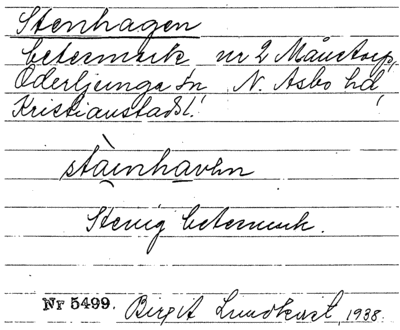 Stenhagen
betesmark nr 2 Månstorp,
Oderljunga sn N. Åsbo hd,
Kristianstads l.
stàinhavən
Stenig betesmark.
Nr 5499. Birgit Lundkvist, 1938.